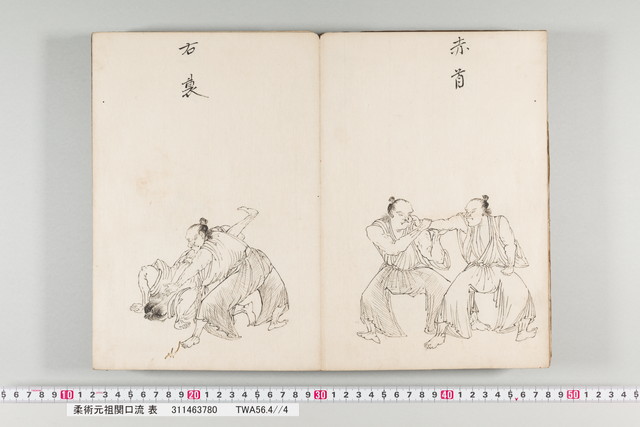 赤
首
右
裏
6 7 8 9 10 1 2 3 4 5 6 7 8 9 20 1 2 3 4 5 6 7 8 9 30 1 2 3 4 5 6 7 8 9 40 1 2 3 4 5 6 7 8 9 50 1 2 3 4
柔術元祖関口流 表 311463780 TWA56.4//4